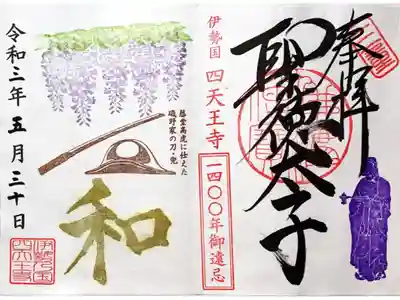 奉拝
聖徳太子
伊勢国 四天王寺
一四〇〇年御遠忌
藤堂高虎に仕えた
磯野家の刀・兜
和
令和三年 五月三十日